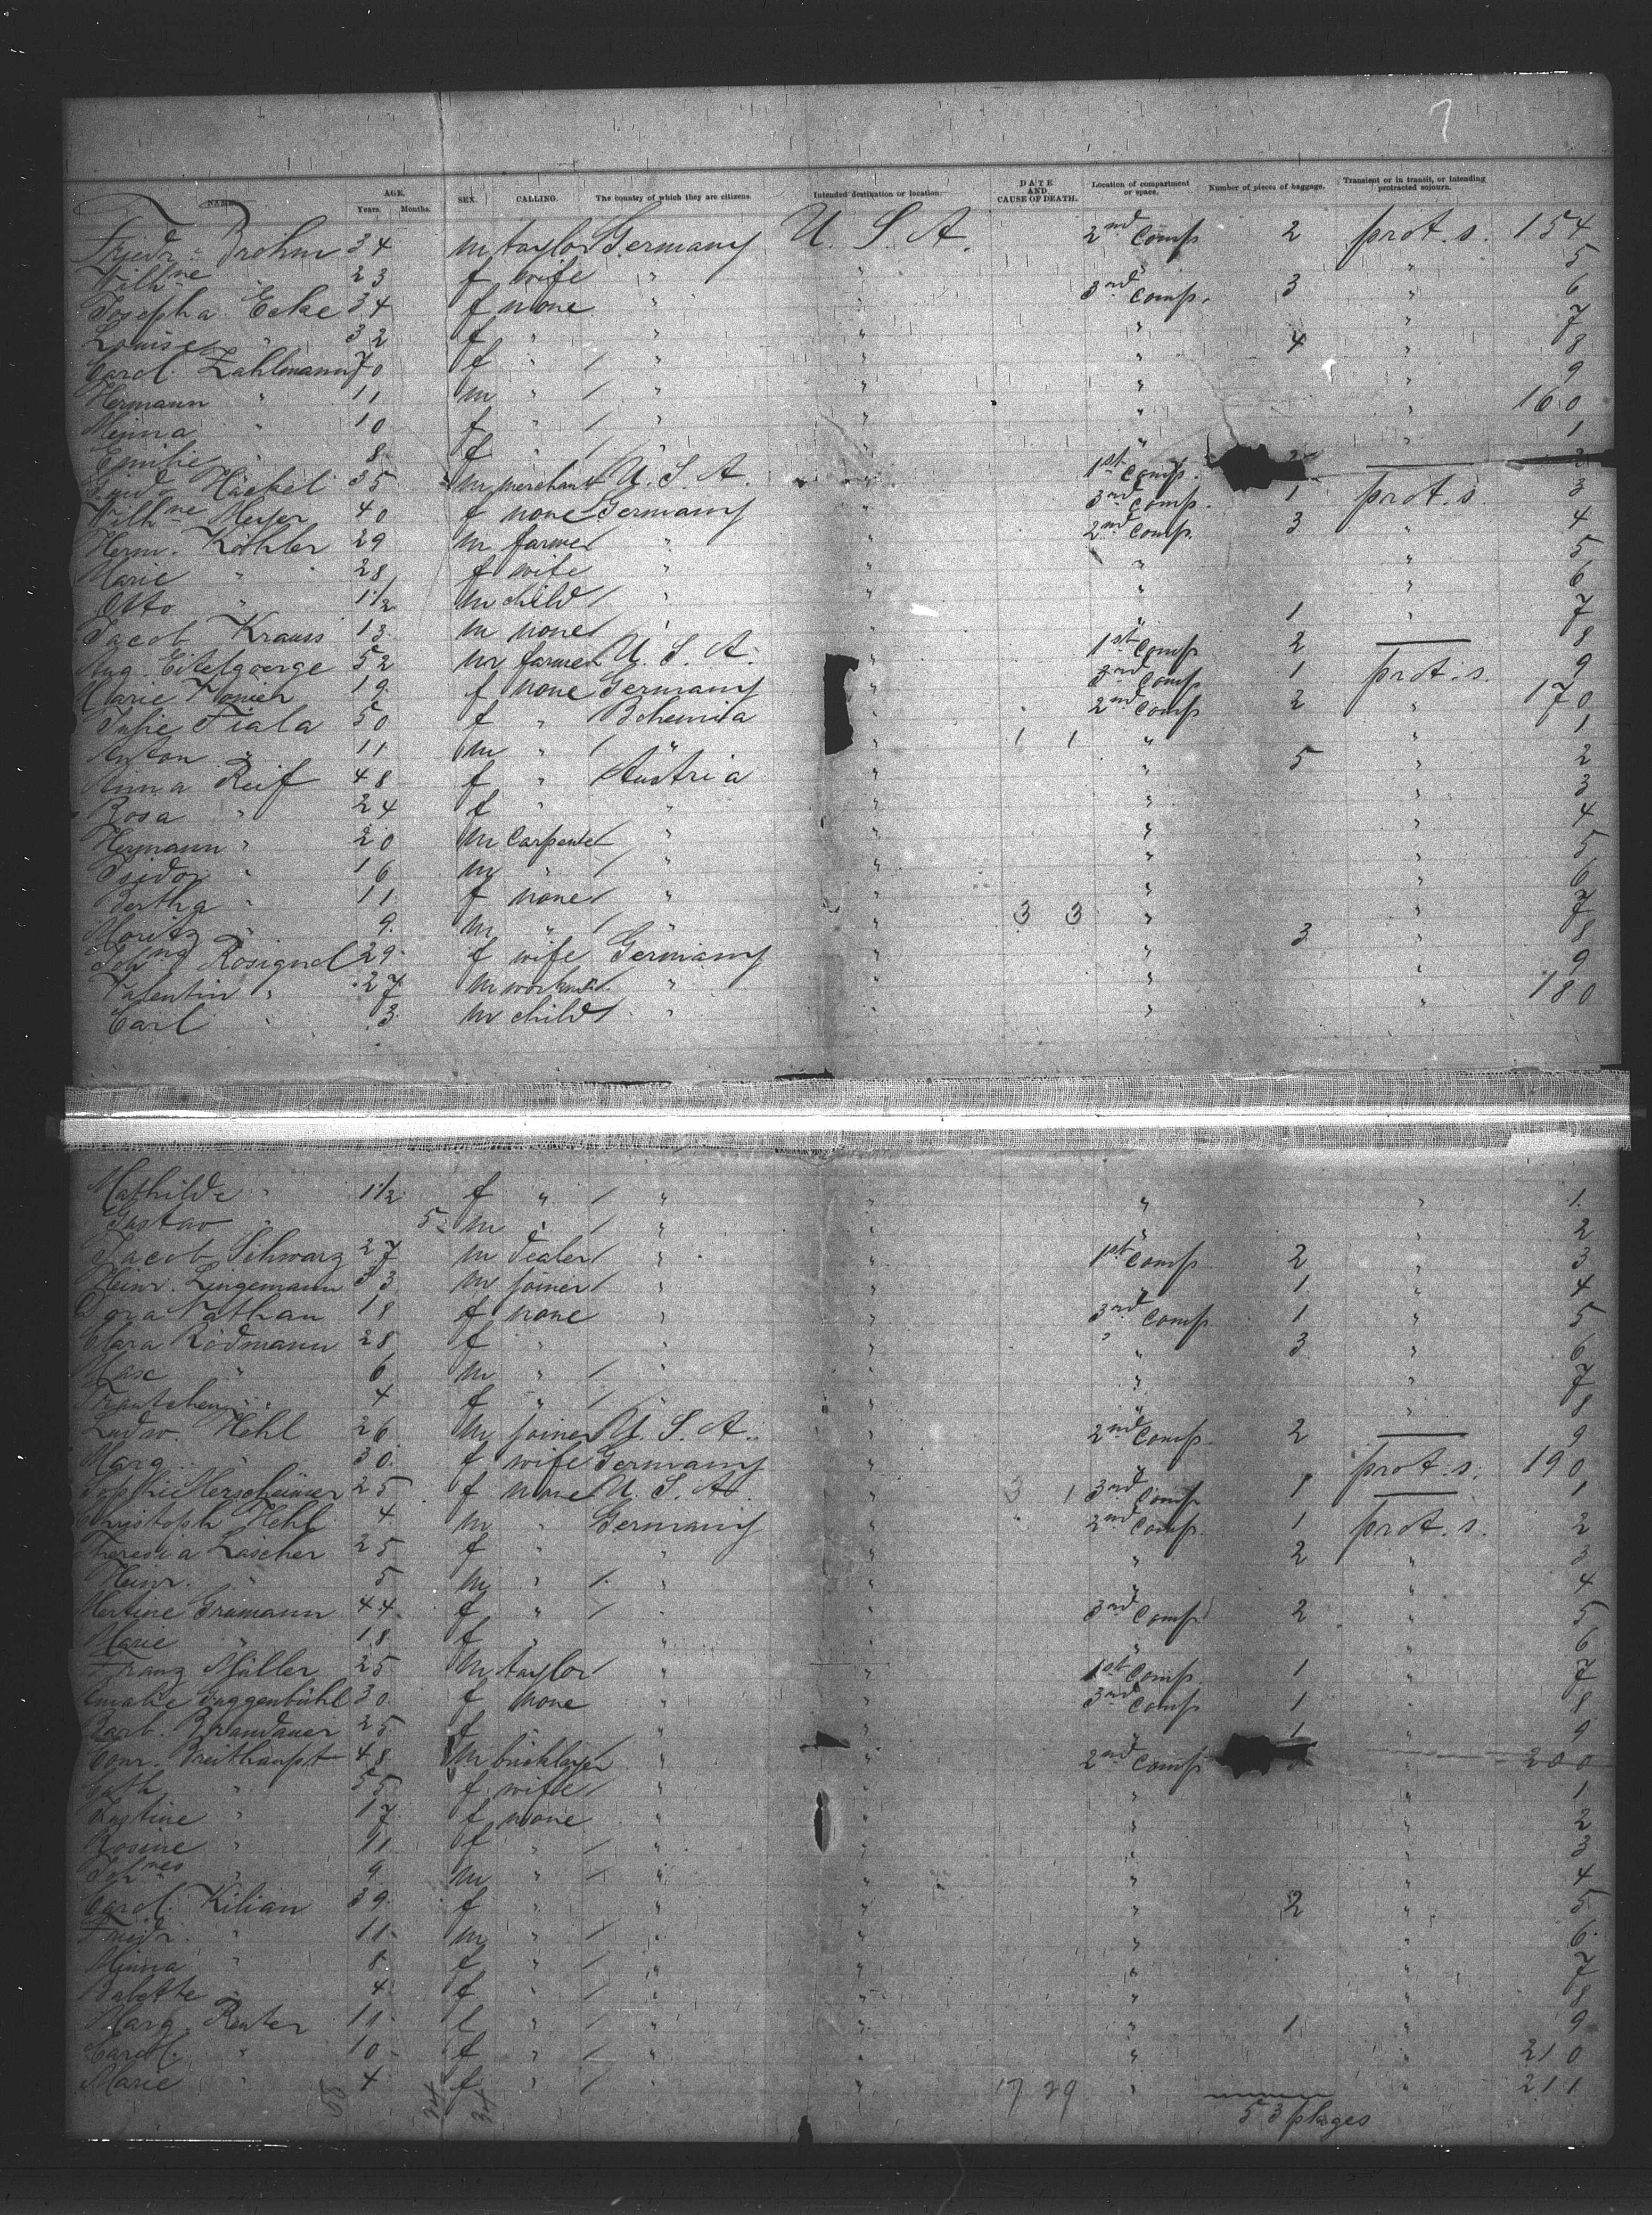 7
NAME. AGE. Years. Months. SEX. CALLING. The country of which they are citizens. Intended destination or location. DATE AND CAUSE OF DEATH. Location of compartment or space. Number of pieces of baggage. Transient or in transit, or intending protracted sojourn.
Friedr. Brohm 34 m taylor Germany U. S. A. 2nd Comp 2 prot. s. 154
Wilhne " 23 f wife " " " " 5
Josepha Ecke 34 f none " " 3rd Comp. 3 " 6
Louise " 32 f " " " " " 7
Carol. Zahlmann 70 f " / " " " 4 " 8
Hermann " 11 m " / " " " " 9
Minna " 10 f " / " " " " 160
Emilie " 8 f " / " " " " 1
Guido Häckel 35 m merchant U. S. A. " 1st Comp. 2 — 2
Wilhne Meyer 40 f none Germany " 3rd Comp. 1 prot. s. 3
Herm. Köhler 29 m farmer " " 2nd Comp. 3 " 4
Marie " 28 f wife " " " " 5
Otto " 1 1/2 m child / " " " " 6
Jacob Krauss 13 m none / " " " 1 " 7
Aug. Eitelgoerge 52 m farmer U. S. A. " 1st Comp 2 — 8
Marie 19 f none Germany " 3rd Comp 1 prot. s. 9
Julie Fiala 50 f " Bohemia " 2nd Comp 2 " 170
Anton " 11 m " / " " 1 1 " " 1
Anna Reif 48 f " Austria " " 5 " 2
Rosa " 24 f " " " " " 3
Hermann " 20 m Carpenter / " " " " 4
Isidor " 16 m " / " " " " 5
Bertha " 11 f none / " " " " 6
Moritz " 9 m " / " " 3 3 " " 7
Johna Rosignol 29 f wife Germany " " 3 " 8
Valentin " 27 m workm. " " " " 9
Carl " 3 m child / " " " " 180
Mathilde " 1 1/2 f " / " " " " 1
Gustav " 5 m " / " " " 2
Jacob Schwarz 27 m dealer / " " 1st Comp 2 " 3
Heinr. Lingemann 33 m joiner / " " " 1 " 4
Dora Nathan 18 f none " " 3rd Comp 1 " 5
Clara Rodmann 28 f " " " " 3 " 6
Max " 6 m " / " " " " 7
Trautchen " 4 f " / " " " " 8
Ludw. Hehl 26 m joiner U. S. A. " 2nd Comp. 2 — 9
Marg. " 30 f wife Germany " " " prot. s. 190
Sophie Herscheimer 25 f none U. S. A. " 3 1 3rd Comp 1 — 1
Christoph Hehl 4 m " Germany " 2nd Comp. 1 prot. s. 2
Theresia Lascher 25 f " " " " 2 " 3
Heinr. " 5 m " / " " " " 4
Hertine Gramann 44 f " / " " 3rd Comp 2 " 5
Marie " 18 f " " " " " 6
Franz Müller 25 m taylor / " " 1st Comp 1 " 7
Amalie Guggenbühl 30 f none " " 3rd Comp 1 " 8
Barb. Brandauer 25 f " " " " 1 " 9
Conr. Breithaupt 48 m bricklayer " " 2nd Comp " 200
Cath. " 55 f wife / " " " " 1
Justine " 17 f none " " " " 2
Rosine " 11 f " / " " " " 3
Johnes " 9 m " / " " " " 4
Carol. Kilian 39 f " " " " 2 " 5
Friedr. " 11 m " / " " " " 6
Minna " 8 f " / " " " " 7
Babette " 4 f " / " " " " 8
Marg. Reuter 11 f " / " " " 1 " 9
Carol. " 10 f " / " " " " 210
Marie " 4 f " / " " 17 29 " " 211
53 pkages